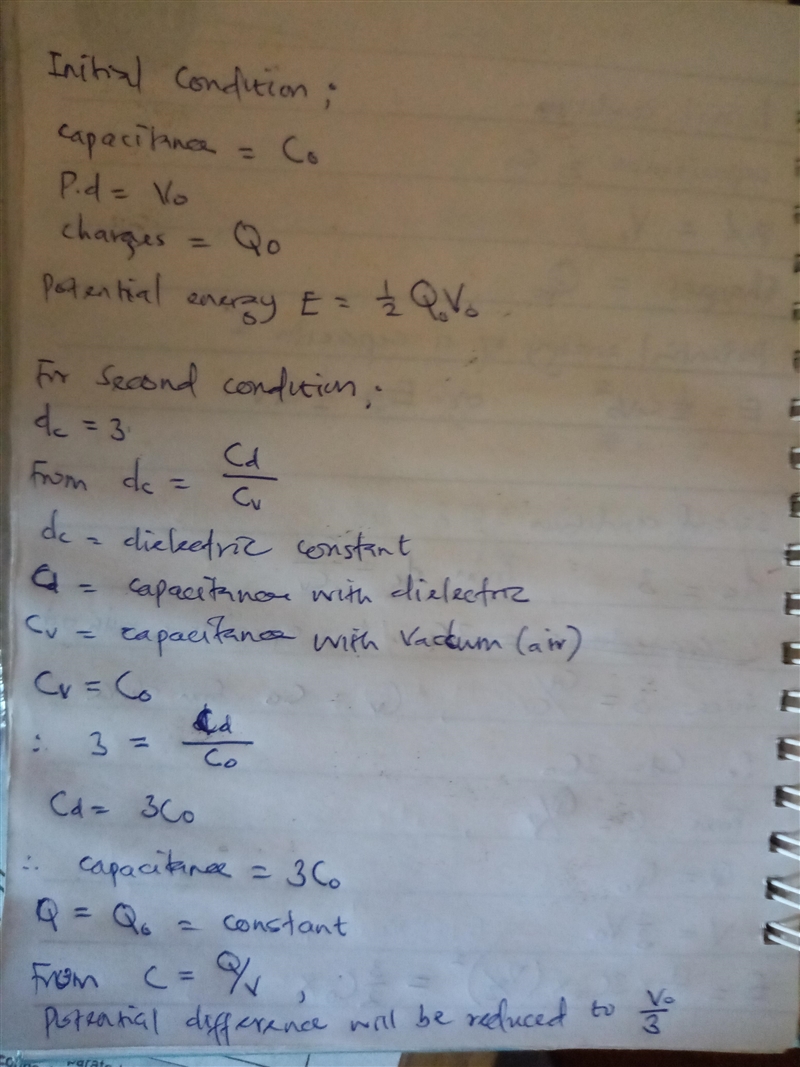 Initial Condition;
capacitance = C₀
P.d = V₀
charges = Q₀
Potential energy E = ½ Q₀V₀
For Second condition;
dc = 3
From dc = Cd/Cv
dc = dielectric constant
Cd = capacitance with dielectric
Cv = capacitance with Vacuum (air)
Cv = C₀
∴ 3 = Cd/C₀
Cd = 3C₀
∴ capacitance = 3C₀
Q = Q₀ = constant
From C = Q/V ,
potential difference will be reduced to V₀/3